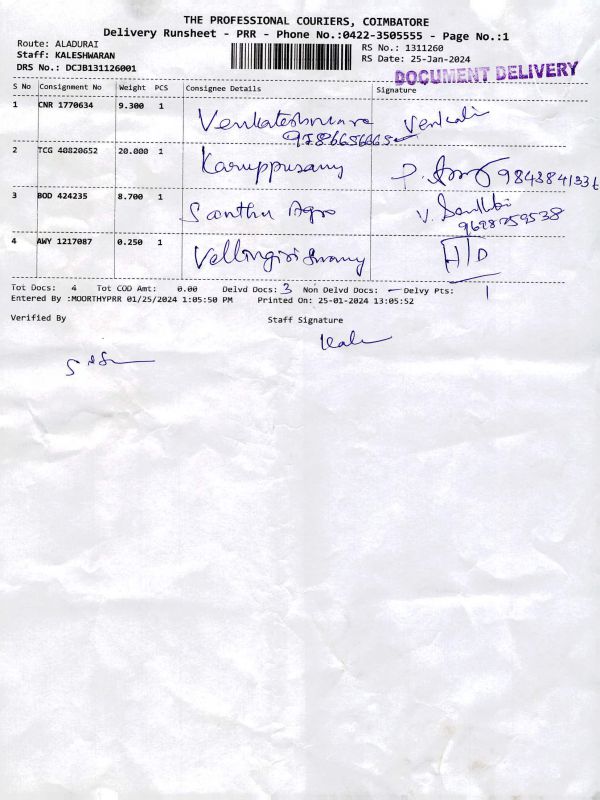 THE PROFESSIONAL COURIERS, COIMBATORE
Delivery Runsheet - PRR - Phone No.:0422-3505555 - Page No.:1
Route: ALADURAI
Staff: KALESHWARAN
DRS No.: DCJB131126001
RS No.: 1311260
RS Date: 25-Jan-2024
DOCUMENT DELIVERY
S No Consignment No Weight PCS Consignee Details Signature
1 CNR 1770634 9.300 1 Venkateshwara Venkat
2 TCG 40820652 20.000 1 Karuppusamy 9843841336
3 BOD 424235 8.700 1 Santhu Agro V.
9628759538
4 AWY 1217087 0.250 1 Vellingiri Swamy H/D
Tot Docs: 4 Tot COD Amt: 0.00 Delvd Docs: 3 Non Delvd Docs: - Delvy Pts: 1
Entered By :MOORTHYPRR 01/25/2024 1:05:50 PM Printed On: 25-01-2024 13:05:52
Verified By Staff Signature
Kale